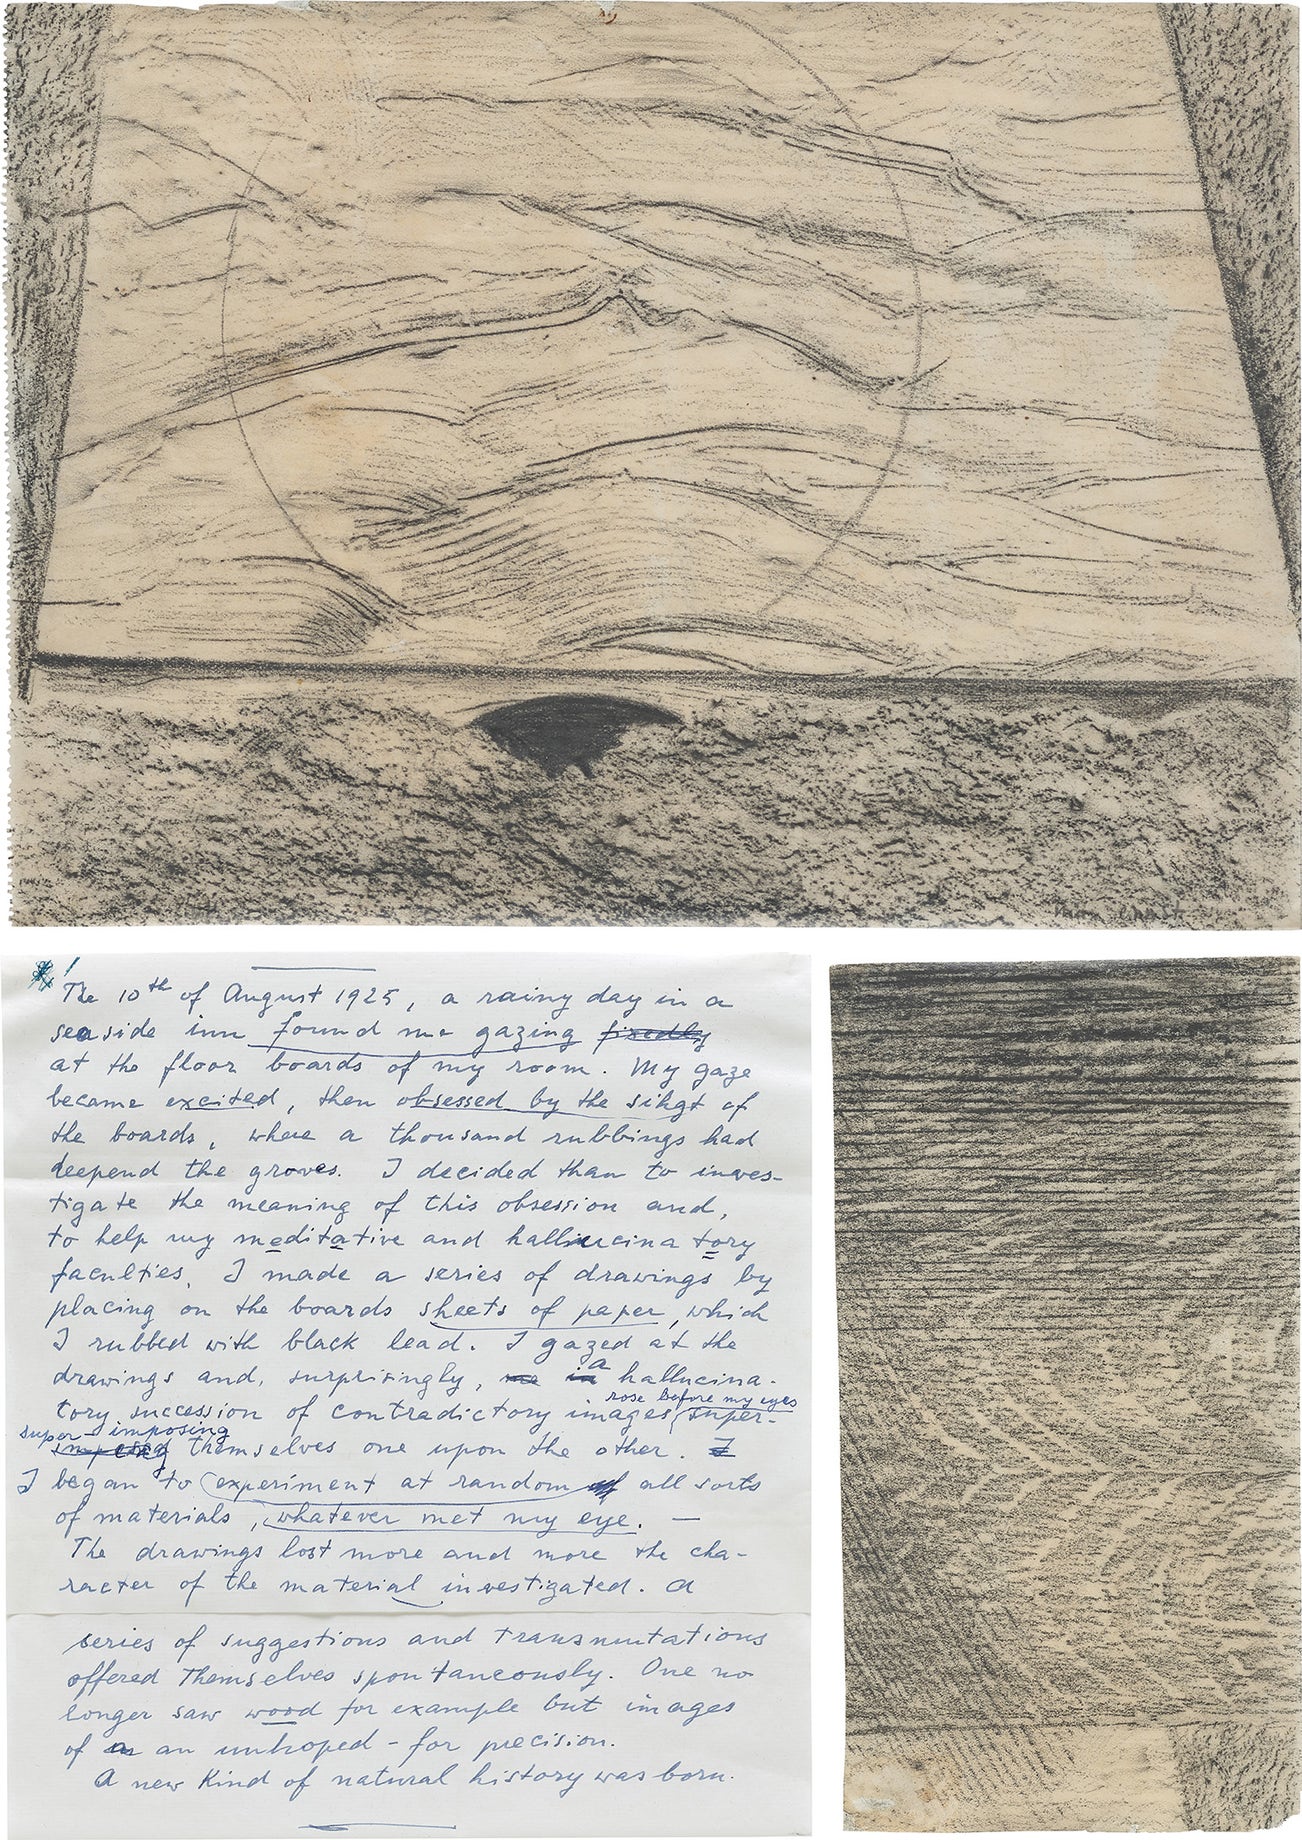 max ernst
The 10th of August 1925, a rainy day in a
seaside inn found me gazing fixedly
at the floor boards of my room. My gaze
became excited, then obsessed by the sihgt of
the boards, where a thousand rubbings had
deepend the groves. I decided than to inves-
tigate the meaning of this obsession and,
to help my meditative and hallucinatory
faculties, I made a series of drawings by
placing on the boards sheets of paper, which
I rubbed with black lead. I gazed at the
drawings and, surprisingly, a hallucina-
tory succession of contradictory images rose before my eyes super-
super-imposing themselves one upon the other. I
I began to experiment at random all sorts
of materials, whatever met my eye. —
The drawings lost more and more the cha-
racter of the material investigated. A
series of suggestions and transmutations
offered themselves spontaneously. One no
longer saw wood for example but images
of an unhoped-for precision.
A new Kind of natural history was born.